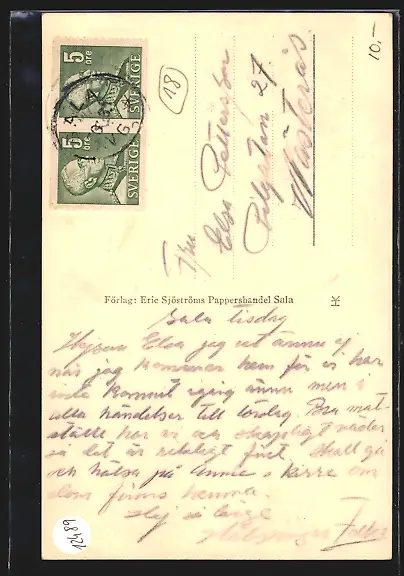 5 öre
SVERIGE
5 öre
SVERIGE
SALA
18
10,-
Fru
Elsa Pettersson
27
Västerås
Förlag: Eric Sjöströms Pappershandel Sala
HK
Sala tisdag
Hejsan Elsa jag vet ännu ej
när jag kommer hem för vi har
inte kommit igång ännu men i
alla händelser till lördag. Bra mat-
ställe har vi och väder
så det är riktigt fint. Skall gå
och hälsa på Annie o Kirre om
dom finns hemma.
Hej så länge
Hälsningar
12489